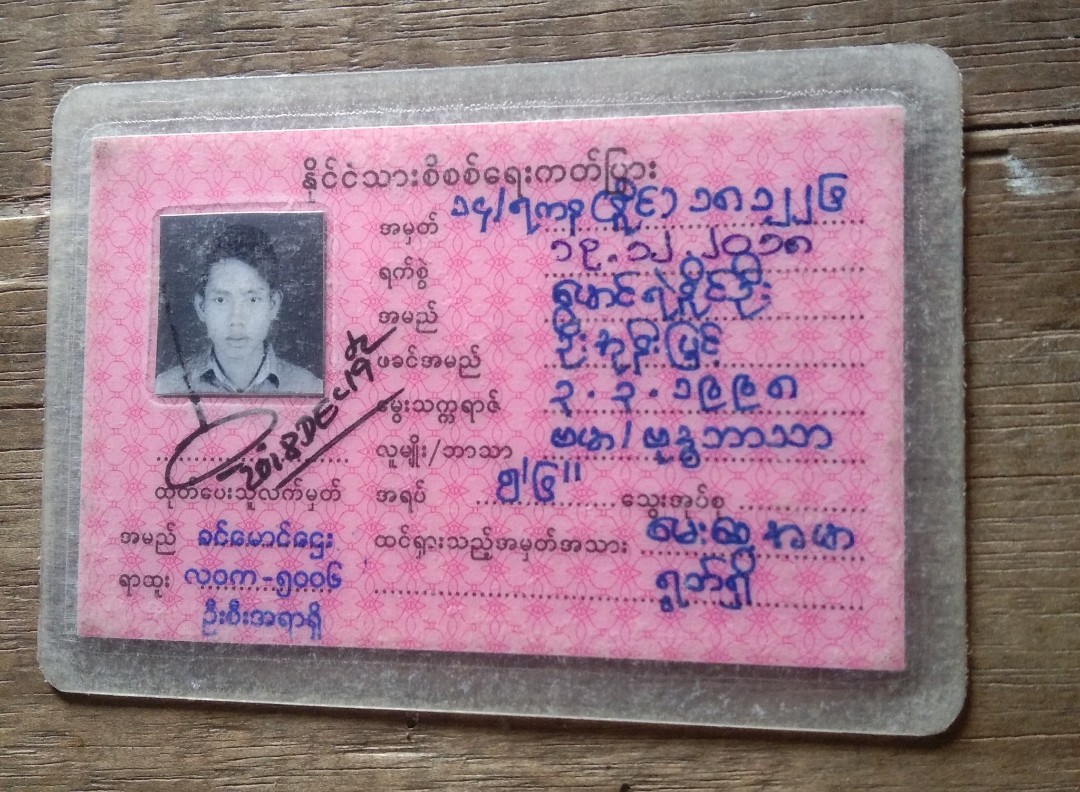 နိုင်ငံသားစိစစ်ရေးကတ်ပြား
အမှတ် ၁၄/ရကန (နိုင်) ၁၈၁၂၂၆
ရက်စွဲ ၁၉.၁၂.၂၀၁၈
အမည် မောင်ရဲနိုင်ဦး
ဖခင်အမည် ဦး မြင့်
မွေးသက္ကရာဇ် ၃.၃.၁၉၉၈
လူမျိုး/ဘာသာ ဗမာ/ဗုဒ္ဓဘာသာ
အရပ် ၅'၆" သွေးအုပ်စု
ထင်ရှားသည့်အမှတ်အသား မေးဆွဲ အမာ
ရွတ်ရှိ
2018 DEC 19
ထုတ်ပေးသူလက်မှတ်
အမည် ခင်မောင်ဌေး
ရာထူး လဝက-၅၀၀၆
ဦးစီးအရာရှိ